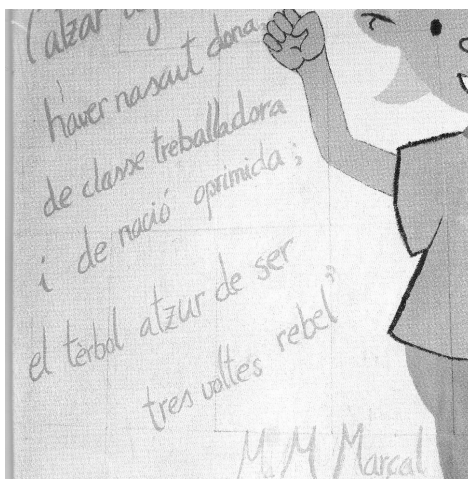 l'atzar
haver nascut dona,
de classe treballadora
i de nació oprimida;
el tèrbol atzur de ser
tres voltes rebel"
M. M Marçal